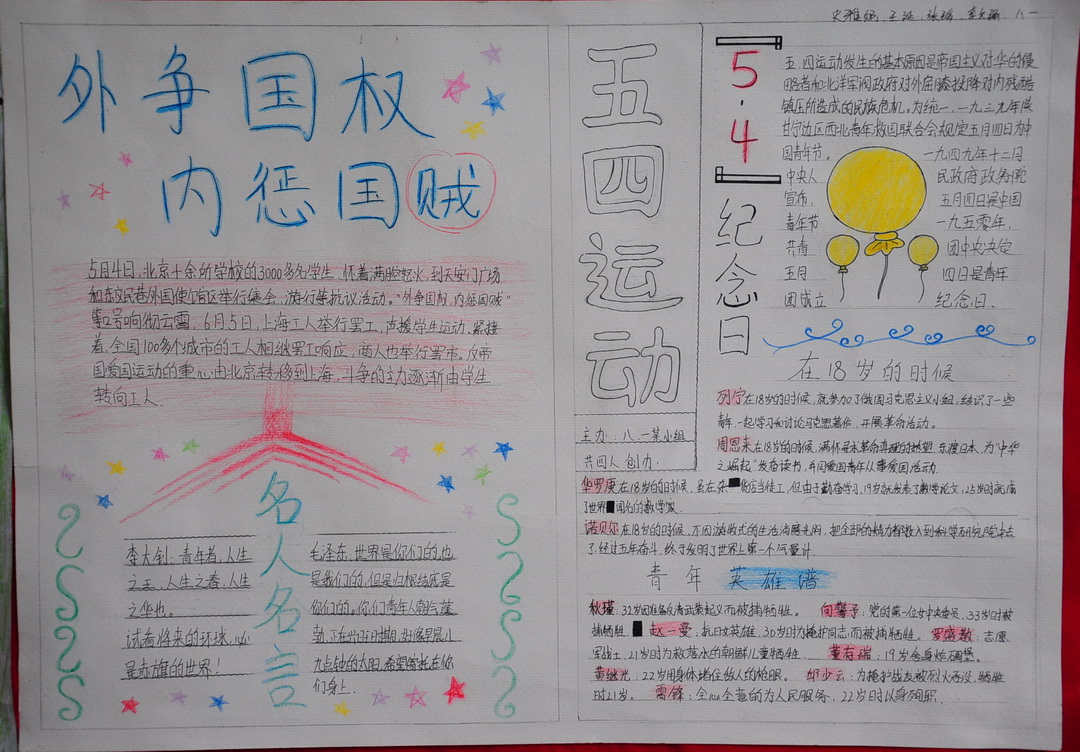 外争国权
内惩国贼
5月4日,北京十余所学校的3000多名学生 怀着满脸怒火,到天安门广场
和东交民巷外国使馆区举行集会、游行等抗议活动。"外争国权,内惩国贼"
等口号响彻云霄。6月5日,上海工人举行罢工,声援学生运动,紧接
着,全国100多个城市的工人相继罢工响应,商人也举行罢市。反帝
国爱国运动的重心由北京转移到上海,斗争的主力逐渐由学生
转向工人.
名人名言
李大钊:青年者,人生
之王,人生之春,人生
之华也。
试看将来的环球,必
是赤旗的世界!
毛泽东:世界是你们的,也
是我们的,但是归根结底是
你们的。你们青年人朝气蓬
勃,正在兴旺时期,好像早晨八
九点钟的太阳.希望寄托在你
们身上.
五四运动
主办:八.一某小组
共四人 创力.
八一
5·4
纪念日
五四运动发生的基本原因是帝国主义对华的侵
略者和北洋军阀政府对外屈膝投降对内残酷
镇压所造成的民族危机。为统一,一九三九年陕
甘宁边区西北青年救国联合会规定五月四日为中
国青年节。 一九四九年十二月
中央人 民政府政务院
宣布, 五月四日是中国
青年节 一九五零年,
共青 团中央决定
五月 四日是青年
团成立 纪念日.
在18岁的时候
列宁在18岁的时候,就参加了俄国马克思主义小组,结识了一些
青年,一起学习和讨论马克思著作,开展革命活动。
周恩来在18岁的时候,满怀寻求革命真理的热望,东渡日本,为"中华
之崛起"发奋读书,并同爱国青年从事爱国活动.
华罗庚在18岁的时候,虽在杂货店当佣工,但由于勤奋学习,19岁就发表了数学论文,25岁时就成
了世界闻名的数学家.
诺贝尔在18岁的时候,不因游散式的生活消磨光阴,把全部的精力都投入到科学研究
了,经过五年奋斗,终于发明了世界上第一个气量计.
青年英雄谱
秋瑾:32岁因准备反清武装起义而被捕牺牲。 向警予:党的第一位女中央委员,33岁时被
捕牺牲. 赵一曼:抗日女英雄,30岁时为掩护同志而被捕牺牲。罗盛教:志愿
军战士,21岁时为救落水的朝鲜儿童牺牲. 董存瑞:19岁舍身炸碉堡。
黄继光:22岁用身体堵住敌人的枪眼。邱少云:为掩护战友被烈火吞没,牺牲
时21岁。雷锋:全心全意的为人民服务,22岁时以身殉职.